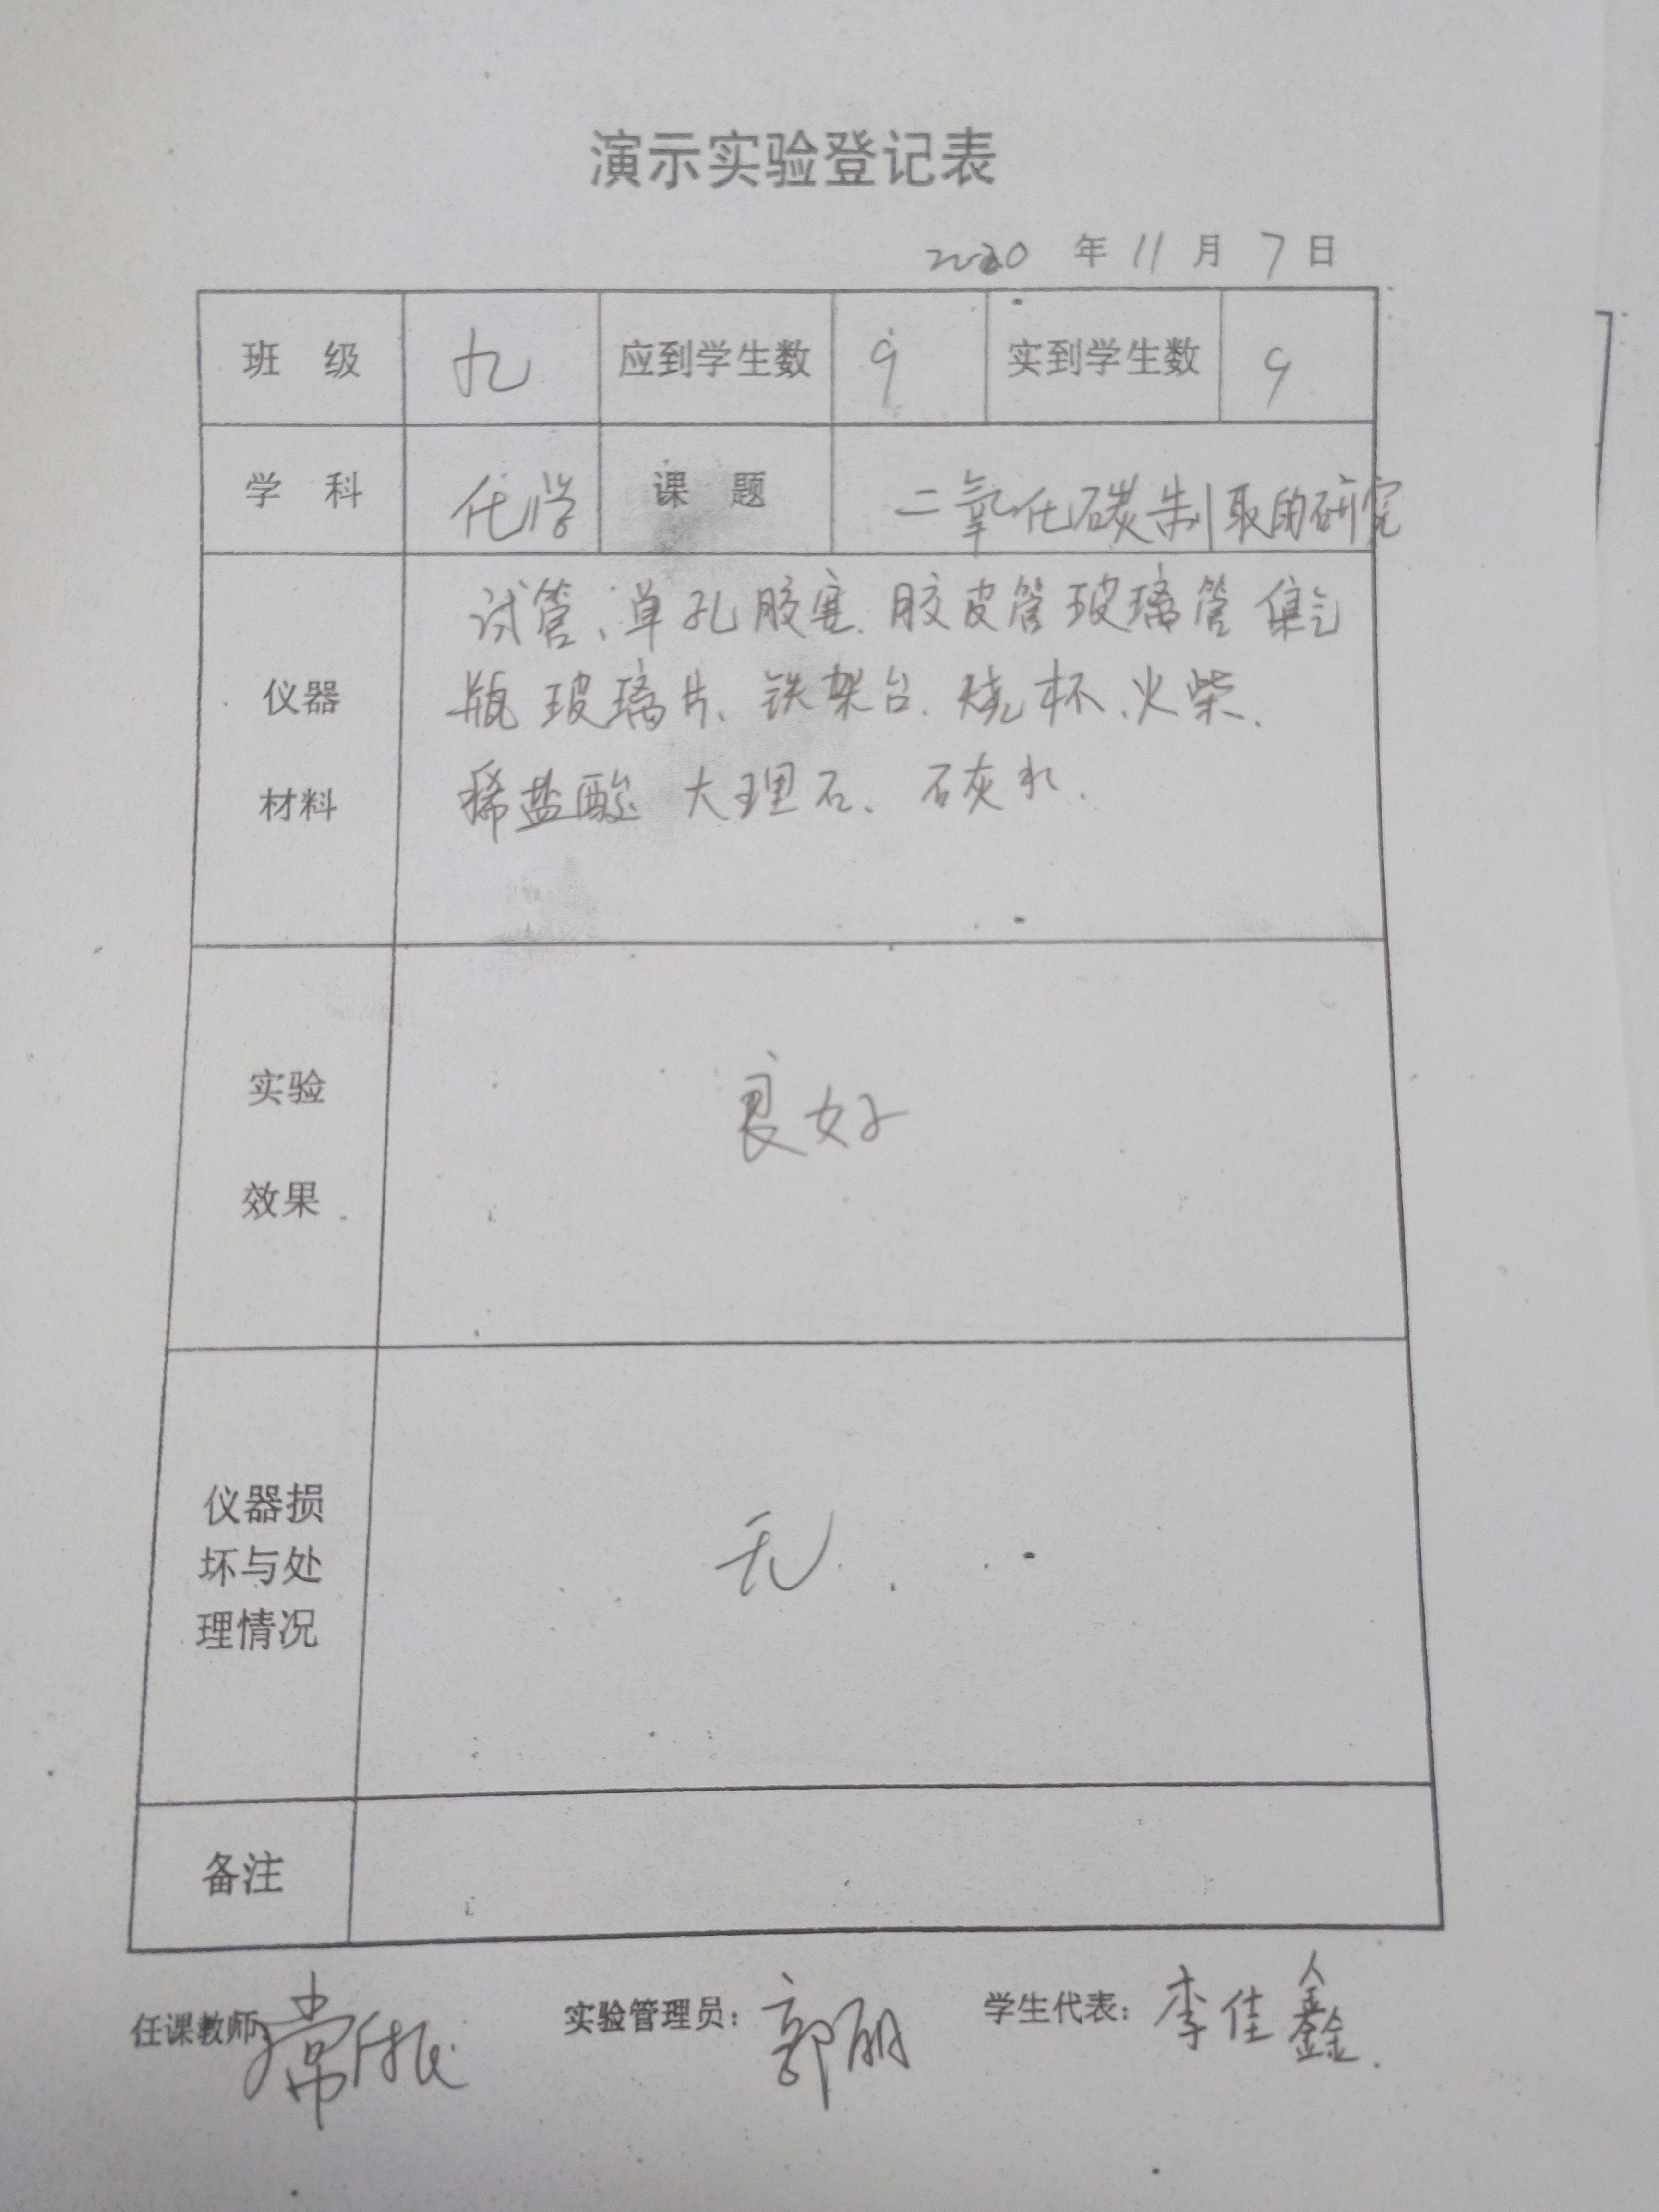 演示实验登记表
2020 年 11 月 7 日
班 级 九 应到学生数 9 实到学生数 9
学 科 化学 课 题 二氧化碳制取的研究
仪器
材料
试管、单孔胶塞、胶皮管玻璃管 集气
瓶 玻璃片、铁架台、烧杯、火柴、
稀盐酸 大理石、石灰水.
实验
效果
良好
仪器损
坏与处
理情况
无.
备注
任课教师: 常
实验管理员: 郭丽
学生代表: 李佳鑫.